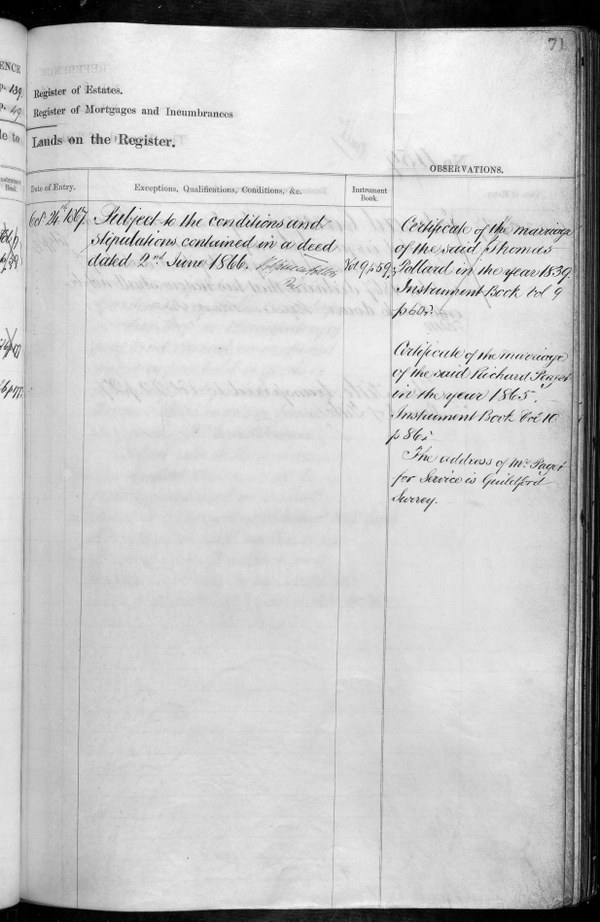 71
ENCE
p. 139
p. 49
Register of Estates.
Register of Mortgages and Incumbrances
le to
Lands on the Register.
OBSERVATIONS.
Date of Entry.
Exceptions, Qualifications, Conditions, &c.
Instrument Book.
Oct 24th 1867
Subject to the conditions and
stipulations contained in a deed
dated 2nd June 1866.
Vol 9 p 59
Certificate of the marriage
of the said Thomas
Pollard in the year 1839
Instrument Book Vol 9
p 60.
Certificate of the marriage
of the said Richard Paget
in the year 1865.
Instrument Book Vol 10
p 86.
The address of Mr. Paget
for Service is Guildford
Surrey.